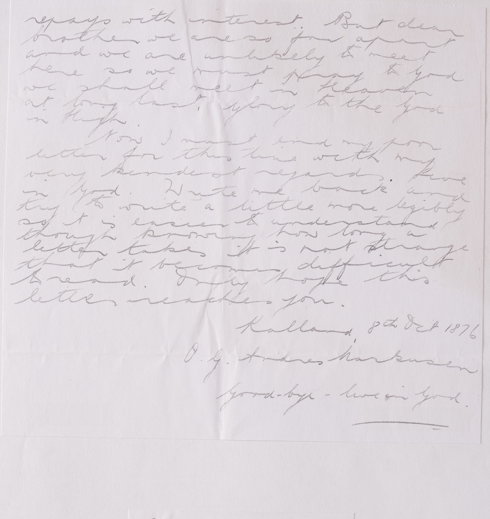 repays with interest. But dear
brother we are so far apart
and we are unlikely to meet
here so we must pray to God
we shall meet in Heaven
at long last, glory to the God
in High.
Now I must end my poor
letter for this time with my
very kindest regards. Live
in God. Write me back and
try to write a little more legibly
so it is easier to understand
though knowing how long a
letter takes it is not strange
that it becomes difficult
to read. Only hope this
letter reaches you.
Kalland, 8th Oct 1876
O. G. Andreas Markussen
Good-bye - live in God.